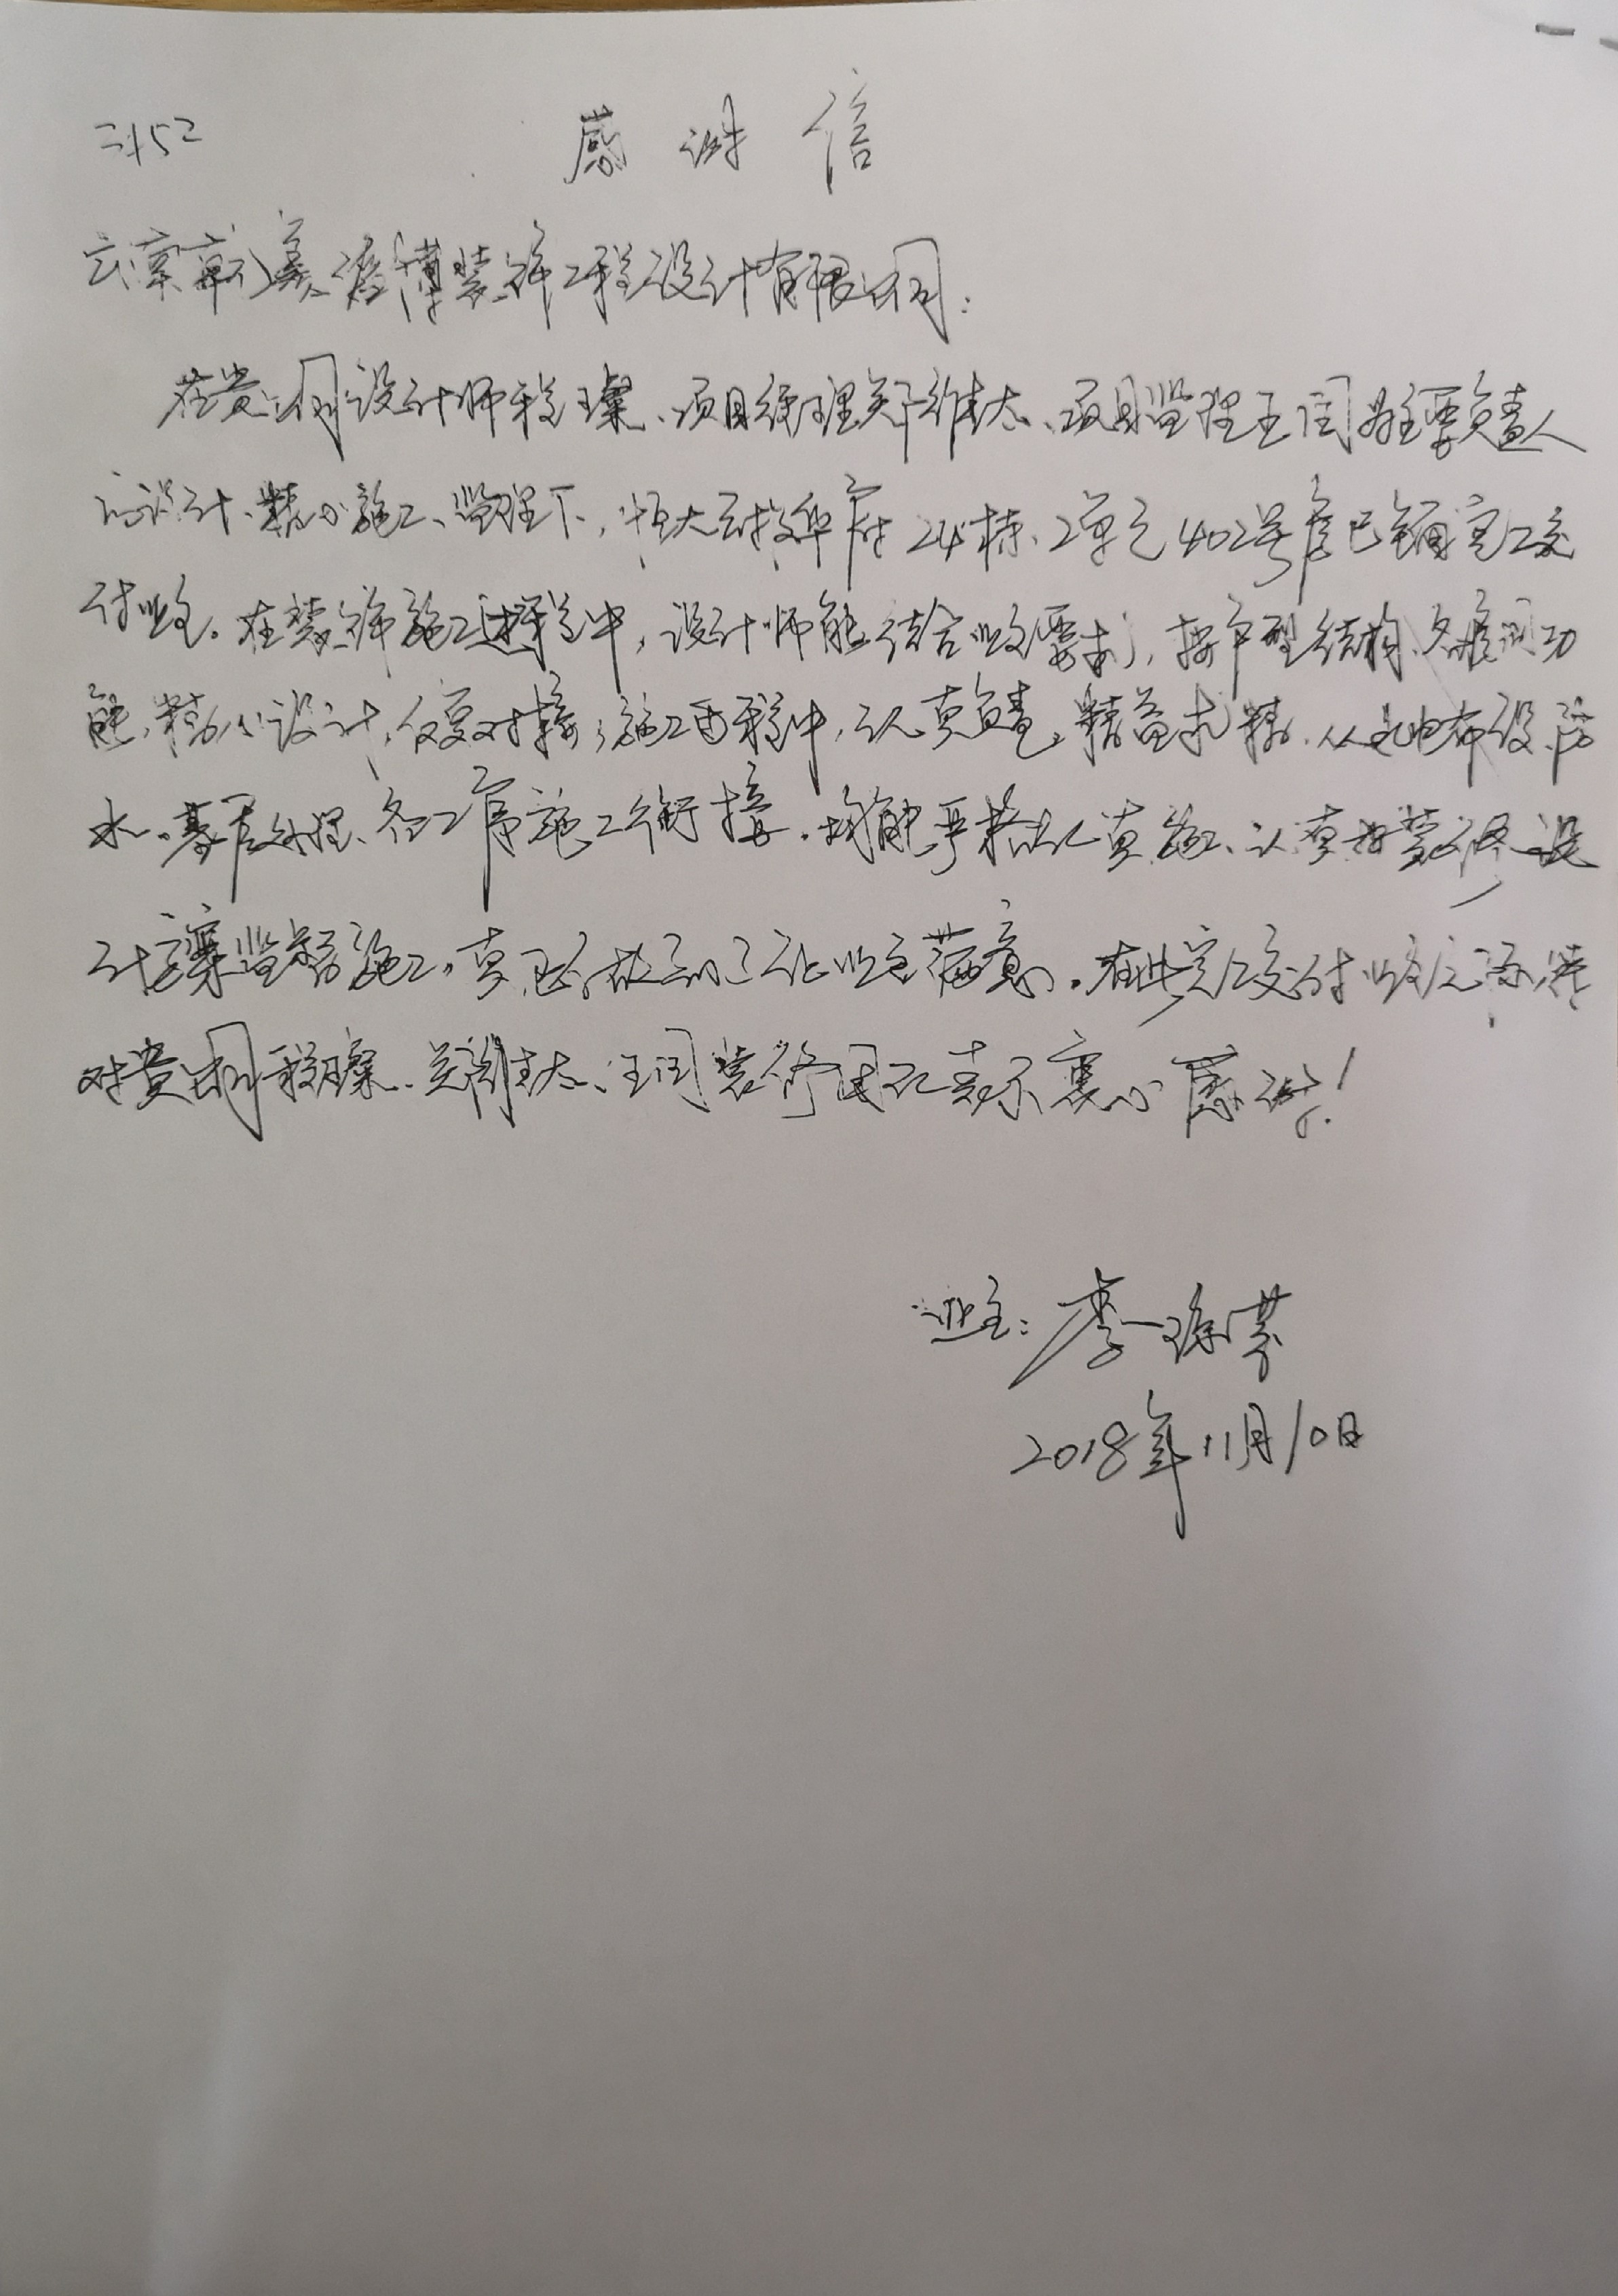 感谢信
云南 美 装饰工程设计有限公司：
在贵公司设计师程璨、项目经理关维太、项目监理王闯为主要负责人
的设计、精心施工、监理下，恒大云报华府24栋、2单元402号房已 完工交
付业主。在装饰施工过程中，设计师能结合业主要求，按户型结构、各房间功
能，精心设计，反复对接；施工过程中，认真负责，精益求精，从水电布设、防
水、基层处理、各工序施工衔接，均能严格认真施工、认真按 设
计方案监督施工，真正做到了让业主满意。在此完工交付业主之际，
对贵公司程璨、关维太、王闯装修团队表示衷心感谢！
业主：李
2018年11月10日